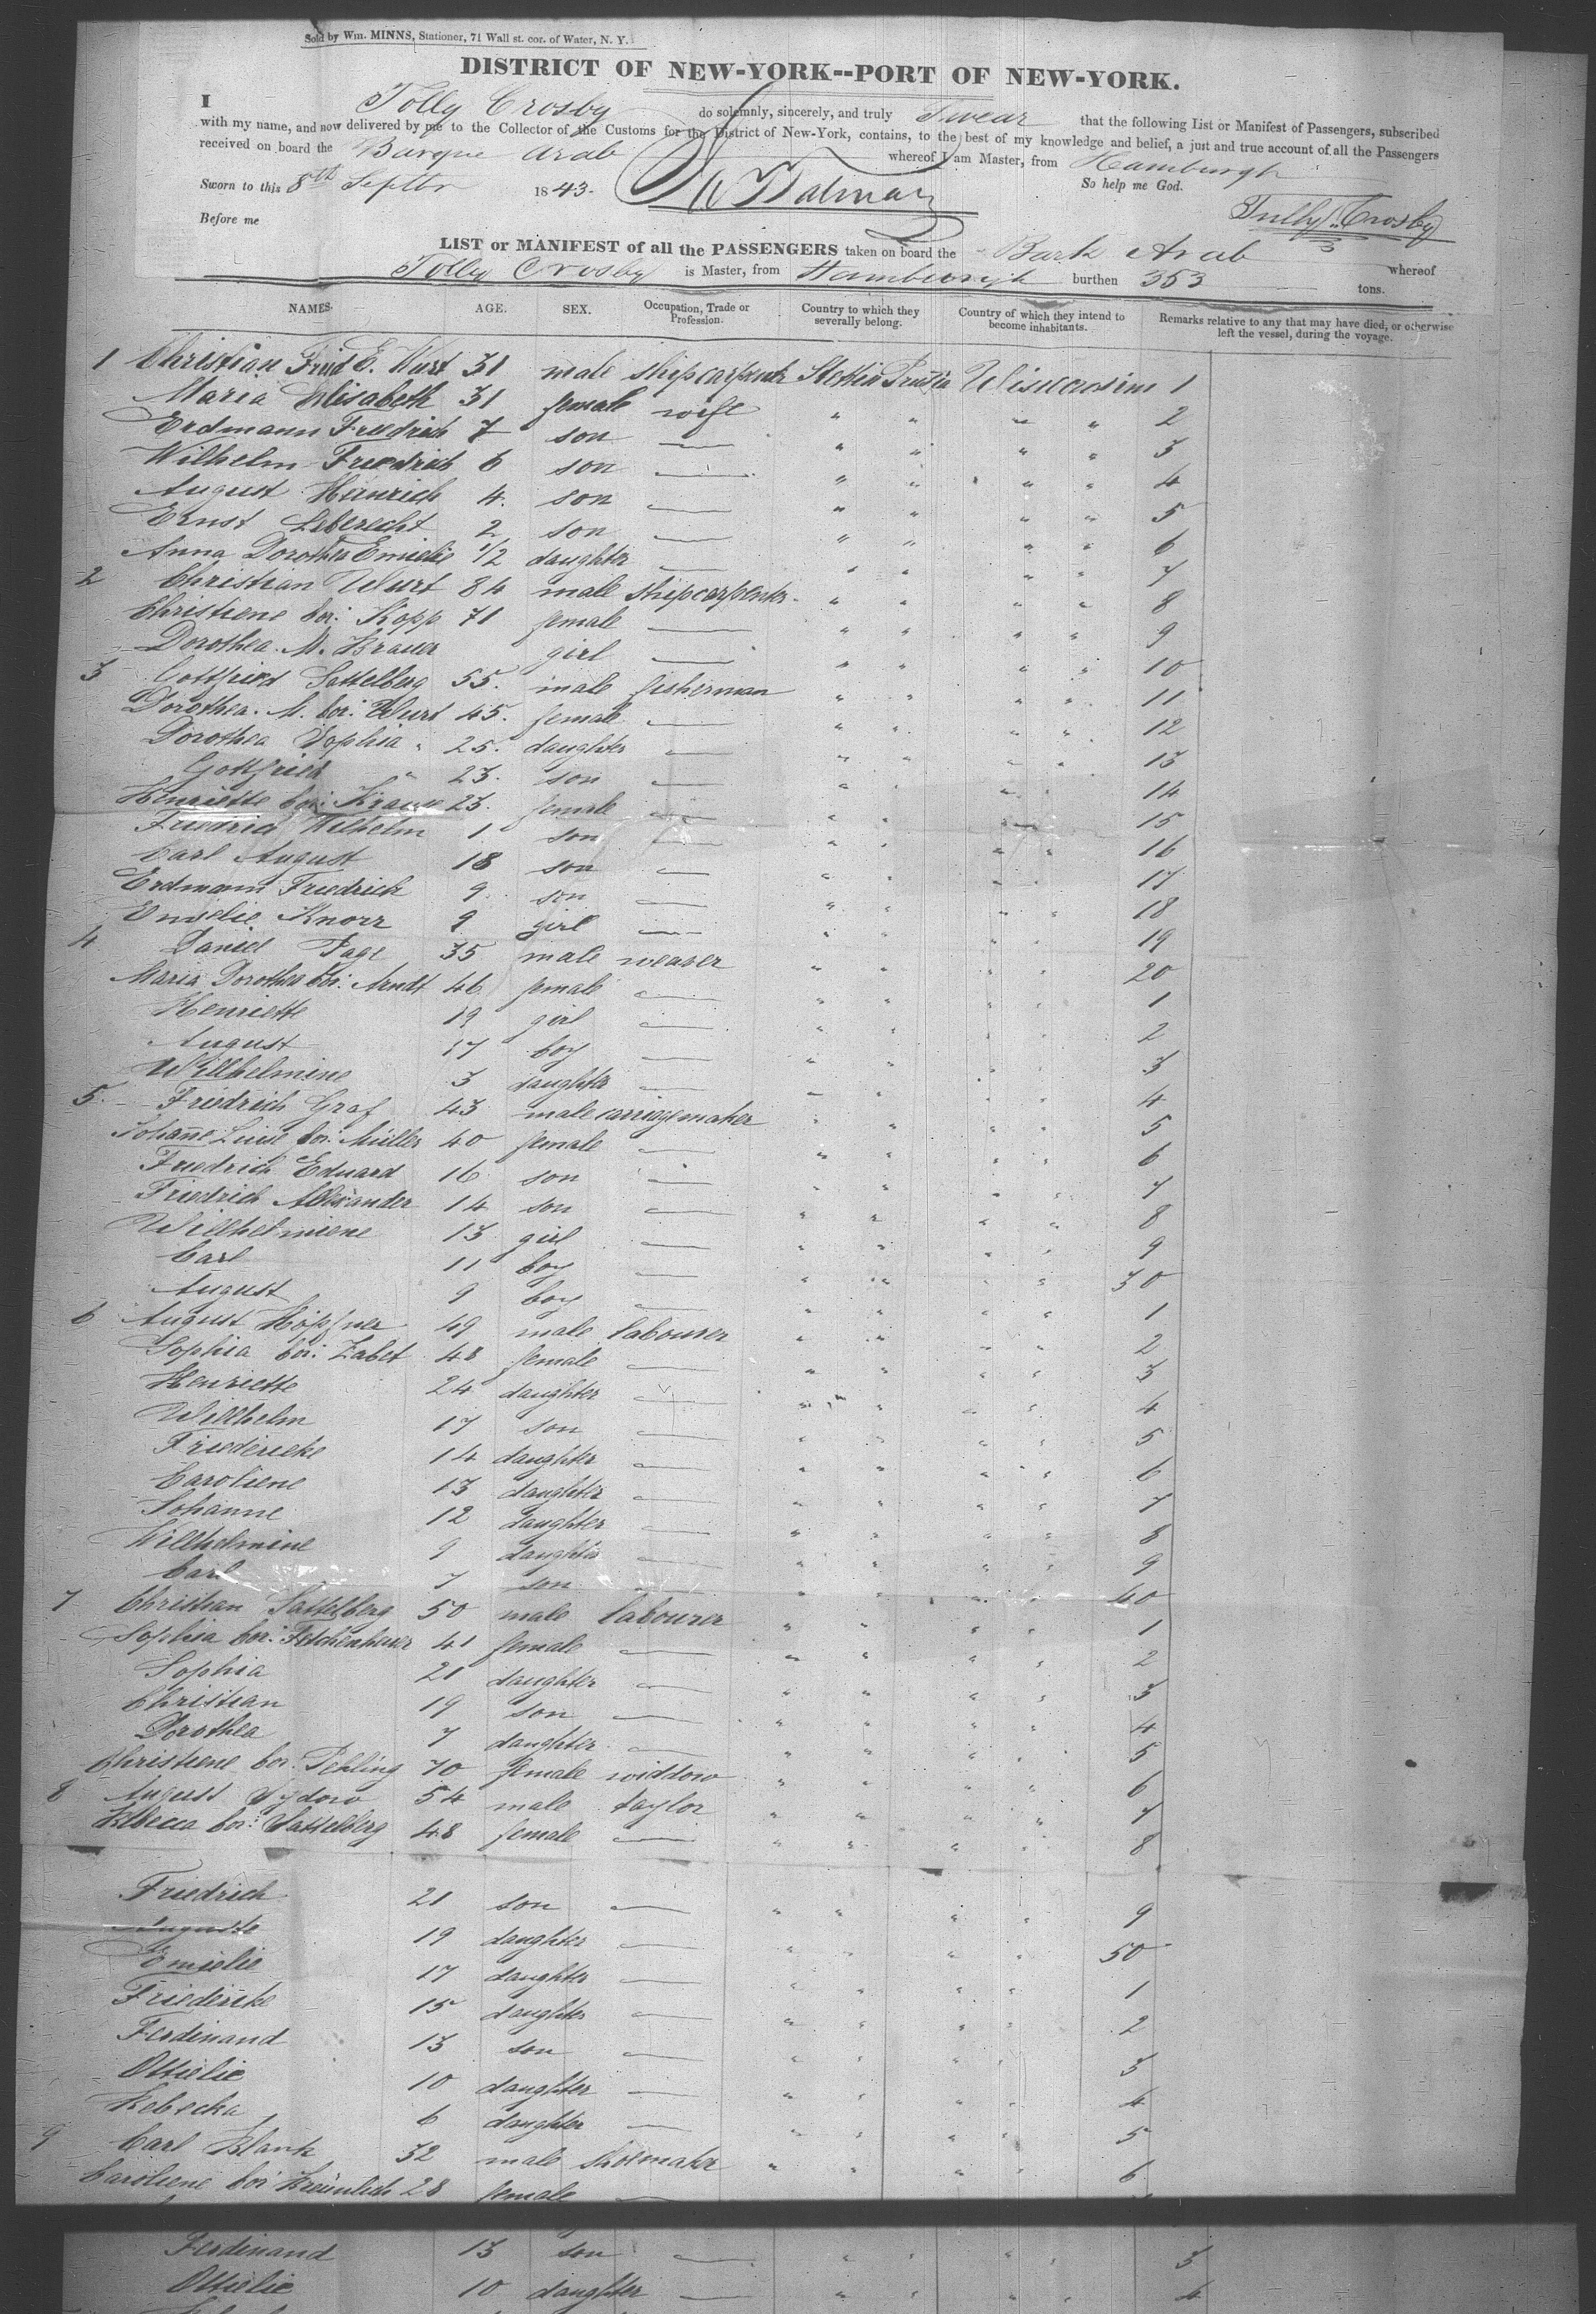 Sold by Wm. MINNS, Stationer, 71 Wall st. cor. of Water, N. Y.
DISTRICT OF NEW-YORK--PORT OF NEW-YORK.
I Tolly Crosby do solemnly, sincerely, and truly Swear that the following List or Manifest of Passengers, subscribed
with my name, and now delivered by me to the Collector of the Customs for the District of New-York, contains, to the best of my knowledge and belief, a just and true account of all the Passengers
received on board the Barque Arab whereof I am Master, from Hamburgh
Sworn to this 8th Septbr 1843. So help me God.
Before me Tully Crosby
LIST or MANIFEST of all the PASSENGERS taken on board the Bark Arab whereof
Tolly Crosby is Master, from Hamburgh burthen 353 tons.
NAMES. AGE. SEX. Occupation, Trade or Profession. Country to which they severally belong. Country of which they intend to become inhabitants. Remarks relative to any that may have died, or otherwise left the vessel, during the voyage.
1 Christian Fried E. Wurt 31 male shipcarpentr Stettin Prussia 1
Maria Elisabeth 31 female wife " " " " 2
Erdmann Friedrich 7 son — " " " " 3
Wilhelm Friedrich 6 son — " " " " 4
August Heinrich 4. son — " " " " 5
Ernst Leberecht 2 son — " " " " 6
Anna Dorothea Emielie 1/2 daughter — " " " " 7
2 Christian Wurt 84 male shipcarpenter " " " " 8
Christiene bor: Kopp 71 female — " " " " 9
Dorothea M. Krauer girl — " " " " 10
3 Gottfried Sattelberg 55. male fisherman " " " " 11
Dorothea. M. bor: Wurt 45. female — " " " " 12
Dorothea Sophia " 25. daughter — " " " " 13
Gottfried " 23. son — " " " " 14
Henriette bor: Krause 23. female — " " " " 15
Friedrich Wilhelm 1 son — " " " " 16
Carl August 18 son — " " " " 17
Erdmann Friedrich 9 son — " " " " 18
Emielie Knorr 9 girl — " " " " 19
4 Daniel Page 35 male weaver " " " " 20
Maria Dorothea bor: Arndt 46 female — " " " " 1
Henriette 19 girl — " " " " 2
August 17 boy — " " " " 3
Willhelmine 3 daughter — " " " " 4
5 Friedrich Graf 43 male carriagemaker " " " " 5
Johanne Luise bor: Müller 40 female — " " " " 6
Friedrich Eduard 16 son — " " " " 7
Friedrich Allexander 14 son — " " " " 8
Willhelmiene 13 girl — " " " " 9
Carl 11 boy — " " " " 30
August 9 boy — " " " " 1
6 August Höpfner 49 male labourer " " " " 2
Sophia bor: Zabet 48 female — " " " " 3
Henriette 24 daughter — " " " " 4
Willhelm 17 son — " " " " 5
Friedericke 14 daughter — " " " " 6
Caroliene 13 daughter — " " " " 7
Johanne 12 daughter — " " " " 8
Willhelmine 9 daughter — " " " " 9
Carl 7 son — " " " " 40
7 Christian Sattelberg 50 male labourer " " " " 1
Sophia bor: 41 female — " " " " 2
Sophia 21 daughter — " " " " 3
Christian 19 son — " " " " 4
Dorothea 7 daughter — " " " " 5
Christiene bor: Pehling 70 female widdow " " " " 6
8 August Sydow 54 male taylor " " " " 7
Rebecca bor: Sattelberg 48 female — " " " " 8
Friedrich 21 son — " " " " 9
Auguste 19 daughter — " " " " 50
Emielie 17 daughter — " " " " 1
Friedericke 15 daughter — " " " " 2
Ferdinand 13 son — " " " " 3
Ottielie 10 daughter — " " " " 4
Rebecka 6 daughter — " " " " 5
9 Carl Blank 32 male shoemaker " " " " 6
Caroliene bor 28 female —
Ferdinand 13 son — " " " " 3
Ottielie 10 daughter — " " " " 4